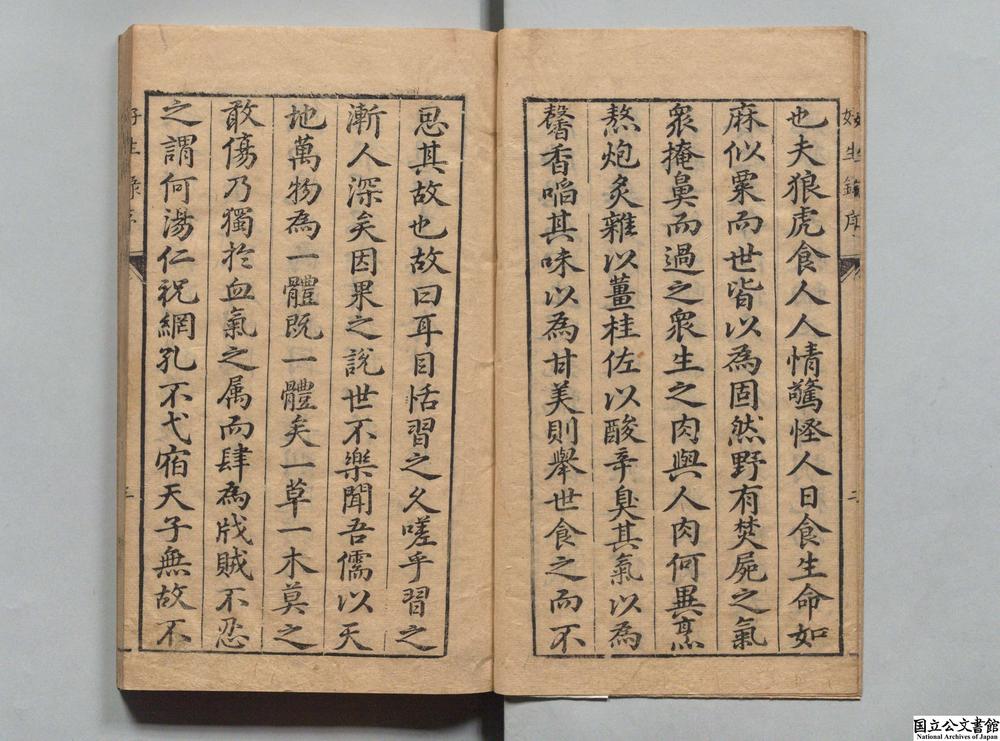 好生錄序
也夫狼虎食人人情驚怪人日食生命如
麻似粟而世皆以為固然野有焚屍之氣
衆掩鼻而過之衆生之肉與人肉何異烹
熬炮炙雜以薑桂佐以酸辛臭其氣以為
馨香啗其味以為甘美則舉世食之而不
思其故也故曰耳目恬習之久嗟乎習之
漸人深矣因果之說世不樂聞吾儒以天
地萬物為一體既一體矣一草一木莫之
敢傷乃獨於血氣之属而肆為戕賊不忍
之謂何湯仁祝網孔不弋宿天子無故不
好生錄序
三
国立公文書館
National Archives of Japan